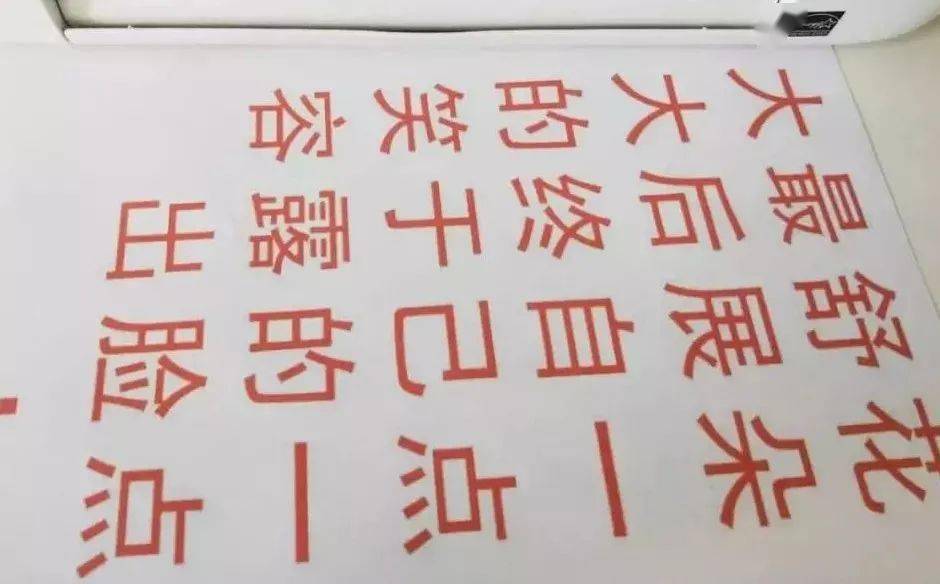 花朵一点一点
舒展自己的脸
最后终于露出
大大的笑容